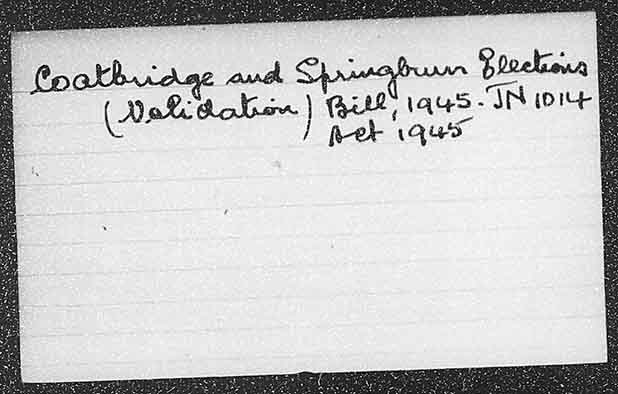 Coatbridge and Springburn Elections
(Validation) Bill, 1945. JN 1014
Act 1945